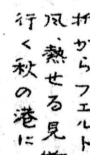 からフエルト
風、熱せる見
行く秋の港に